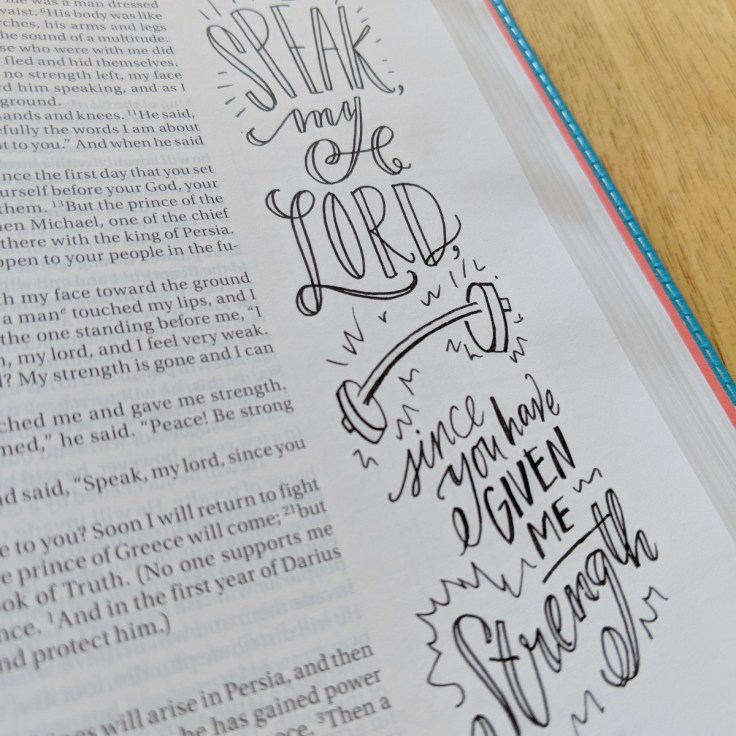 he was a man dressed
waist. ⁶His body was like
rches, his arms and legs
he sound of a multitude.
se who were with me did
fled and hid themselves.
no strength left, my face
rd him speaking, and as I
ground.
ands and knees. ¹¹He said,
efully the words I am about
nt to you.” And when he said
nce the first day that you set
urself before your God, your
them. ¹³But the prince of the
hen Michael, one of the chief
there with the king of Persia.
ppen to your people in the fu-
th my face toward the ground
a manᵉ touched my lips, and I
the one standing before me, “I
n, my lord, and I feel very weak.
l? My strength is gone and I can
ched me and gave me strength.
med,” he said. “Peace! Be strong
nd said, “Speak, my lord, since you
e to you? Soon I will return to fight
e prince of Greece will come; ²¹but
ok of Truth. (No one supports me
nce. ¹And in the first year of Darius
nd protect him.)
ngs will arise in Persia, and then
he has gained power
ece. ³Then a
SPEAK,
my
LORD,
since
you have
GIVEN
ME
Strength